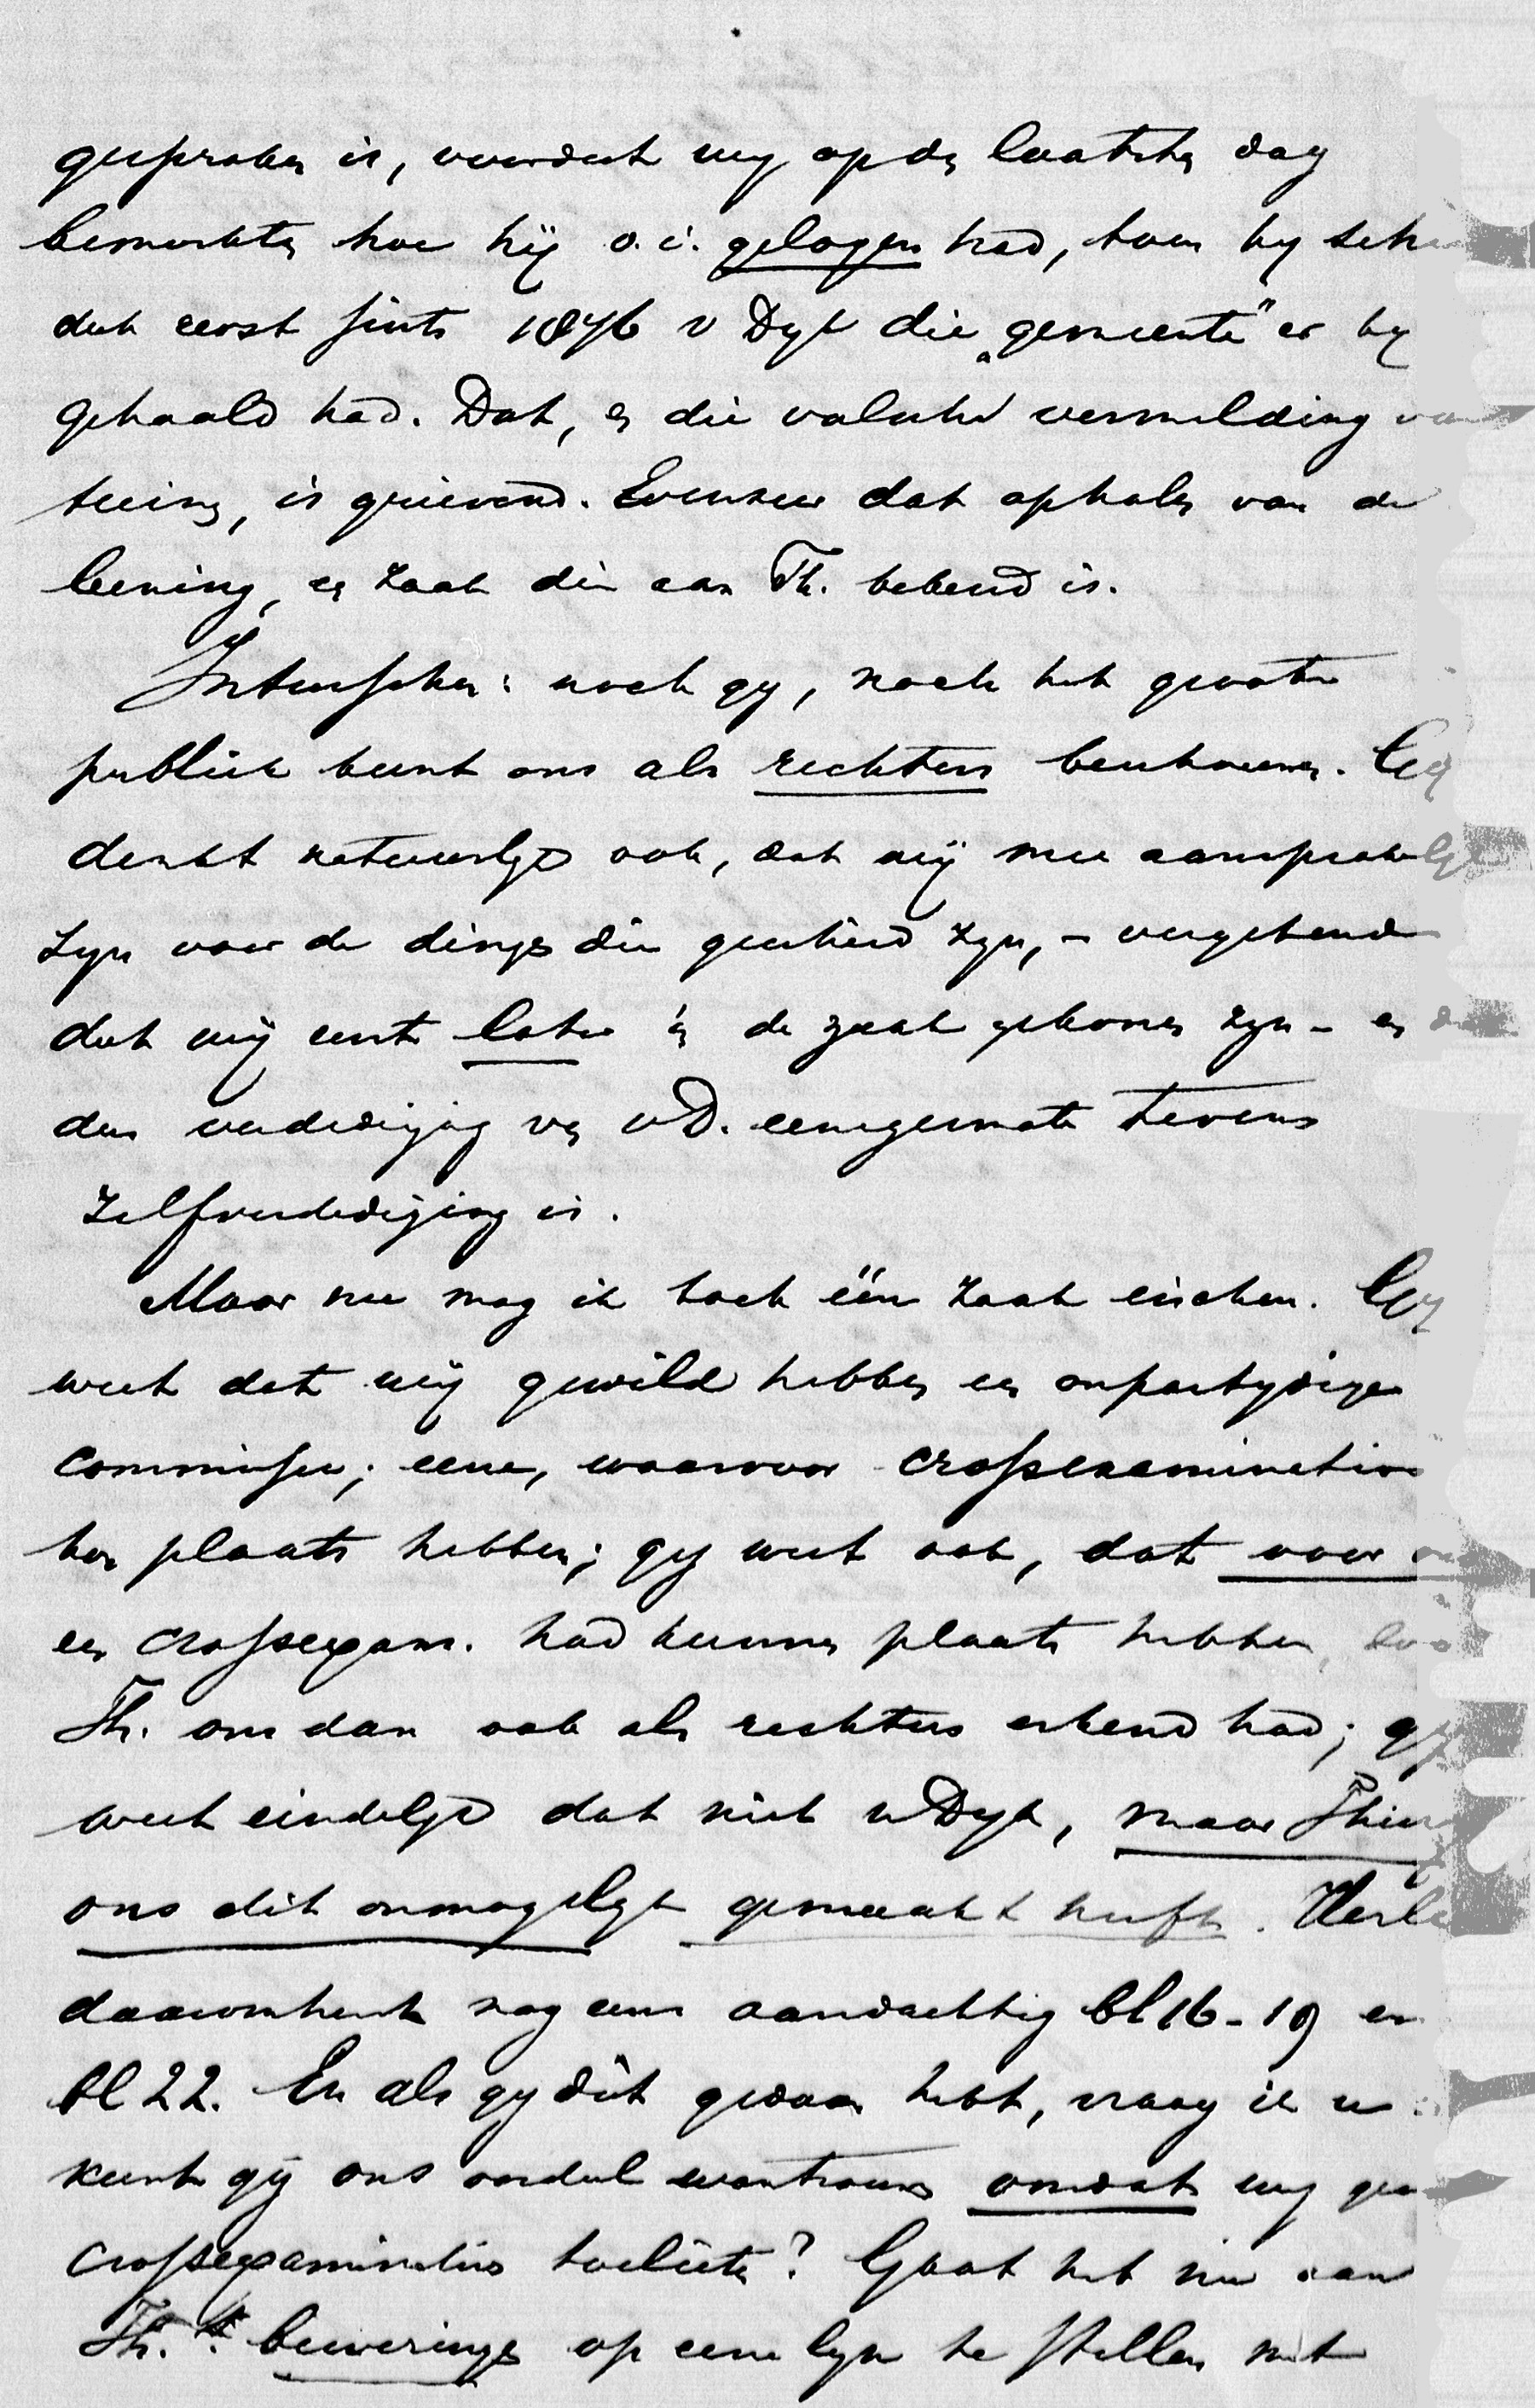 gesproken is, voordat wy op den laatsten dag
bemerkten hoe hij o.i. gelogen had, toen hy
dat eerst sints 1876 v Dyk die „gemeente" er by
gehaald had. Dat, en die valsche vermelding van
is grievend. Evenzeer dat ophalen van de
leening, en zaak die aan Th. bekend is.
Intusschen: noch gy, noch het groote
publiek kunt ons als rechters beschouwen. Gy
denkt natuurlyk ook, dat wij mee aansprakelyk
zyn voor de dingen die geschied zyn, – vergetende
dat wij eerst later in de zaak gekomen zyn – en dat
dus verdediging van vD. eenigermate tevens
zelfverdediging is.
Maar nu mag ik toch één zaak eischen. Gy
weet dat wij gewild hebben een onpartydige
commissie; eene, waarvoor crossexamination
kon plaats hebben; gy weet ook, dat voor ons
een crossexam. had kunnen plaats hebben, zoo
Th. ons dan ook als rechters erkend had; gy
weet eindelyk dat niet v Dyk, maar Thier
ons dit onmogelyk gemaakt heeft. Herlees
daaromtrent nog eens aandachtig bl 16-19 en
bl 22. En als gy dit gedaan hebt, vraag ik u:
kunt gij ons oordeel wantrouwen omdat wy geen
crossexamination toelieten? Gaat het nu aan
Th.'s beweringen op eene lyn te stellen met